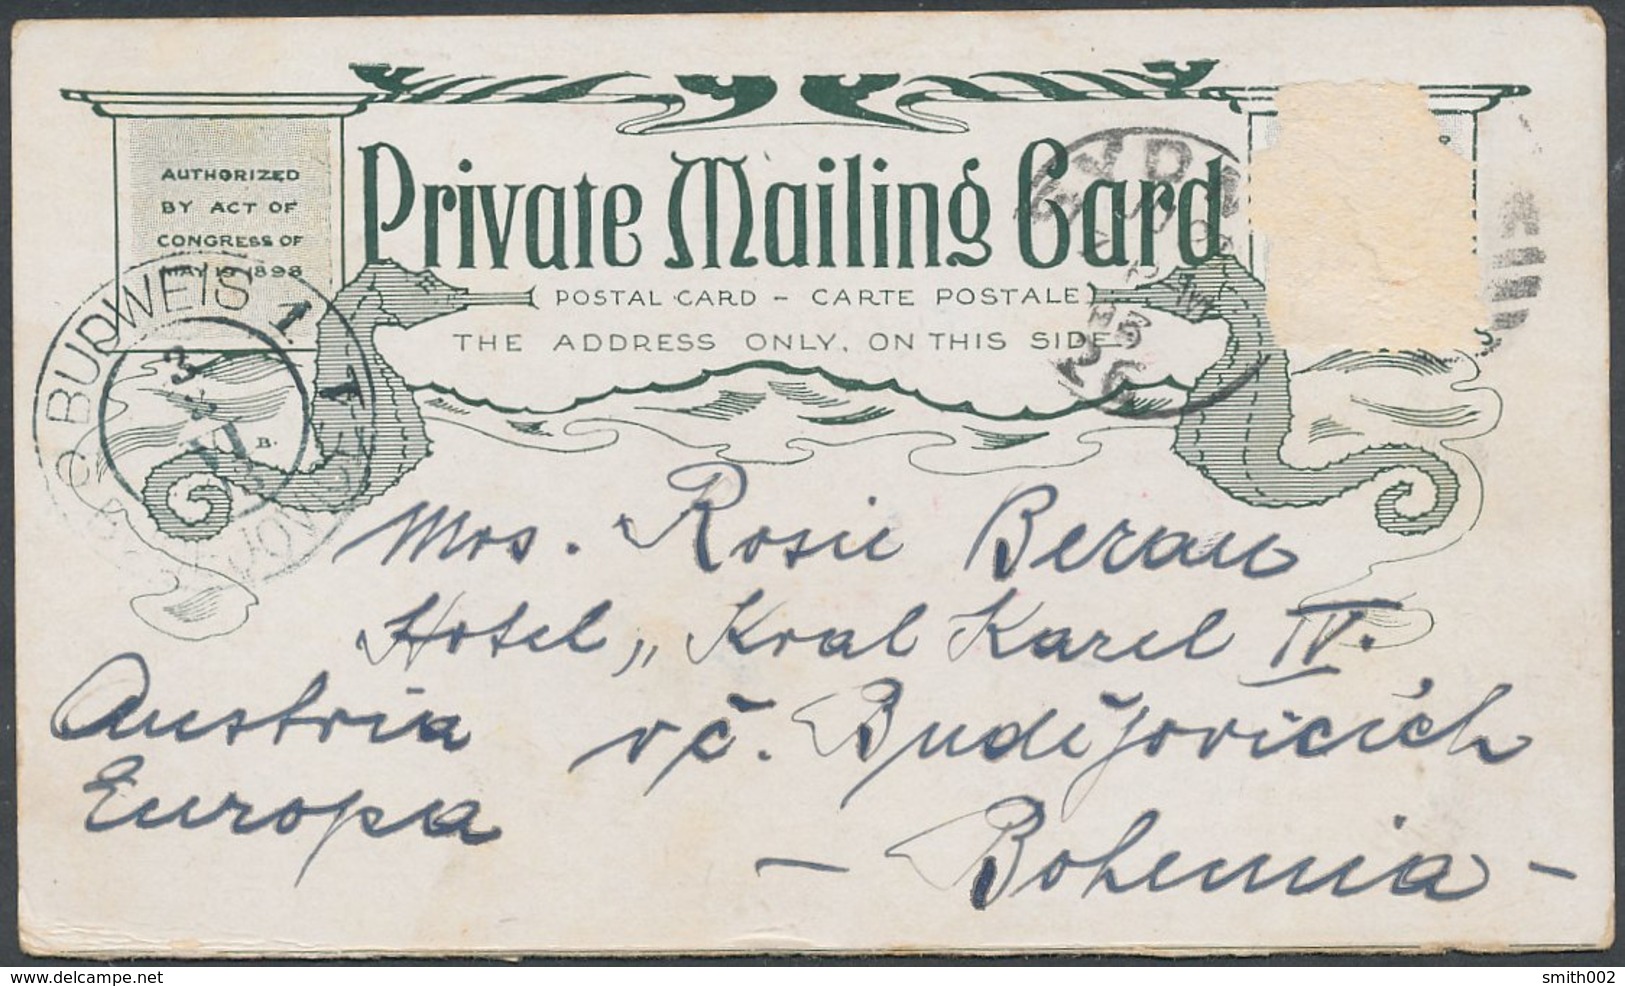 AUTHORIZED
BY ACT OF
CONGRESS OF
MAY 19 1898
Private Mailing Card
( POSTAL CARD – CARTE POSTALE )
THE ADDRESS ONLY, ON THIS SIDE
BUDWEIS 1
3
VI
B.
26
Mrs. Rosie Beran
Hotel „ Kral Karel IV.
Austria vč. Budějovicích
Europa
– Bohemia –
www.delcampe.net
smith002